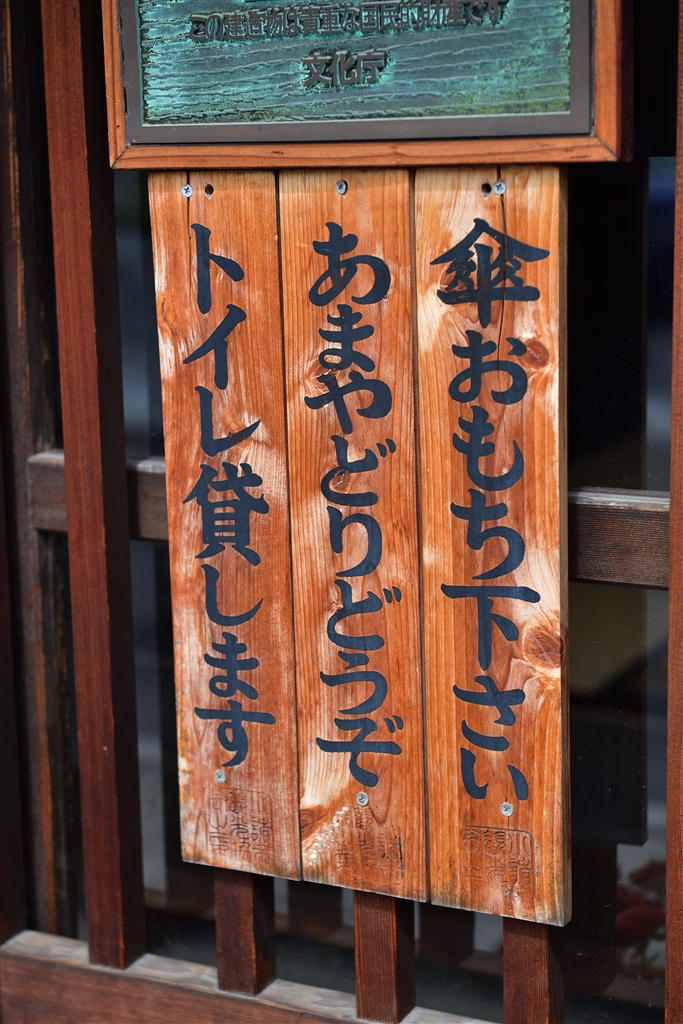 この建造物は貴重な国民的財産です
文化庁
傘おもち下さい
あまやどりどうぞ
トイレ貸します